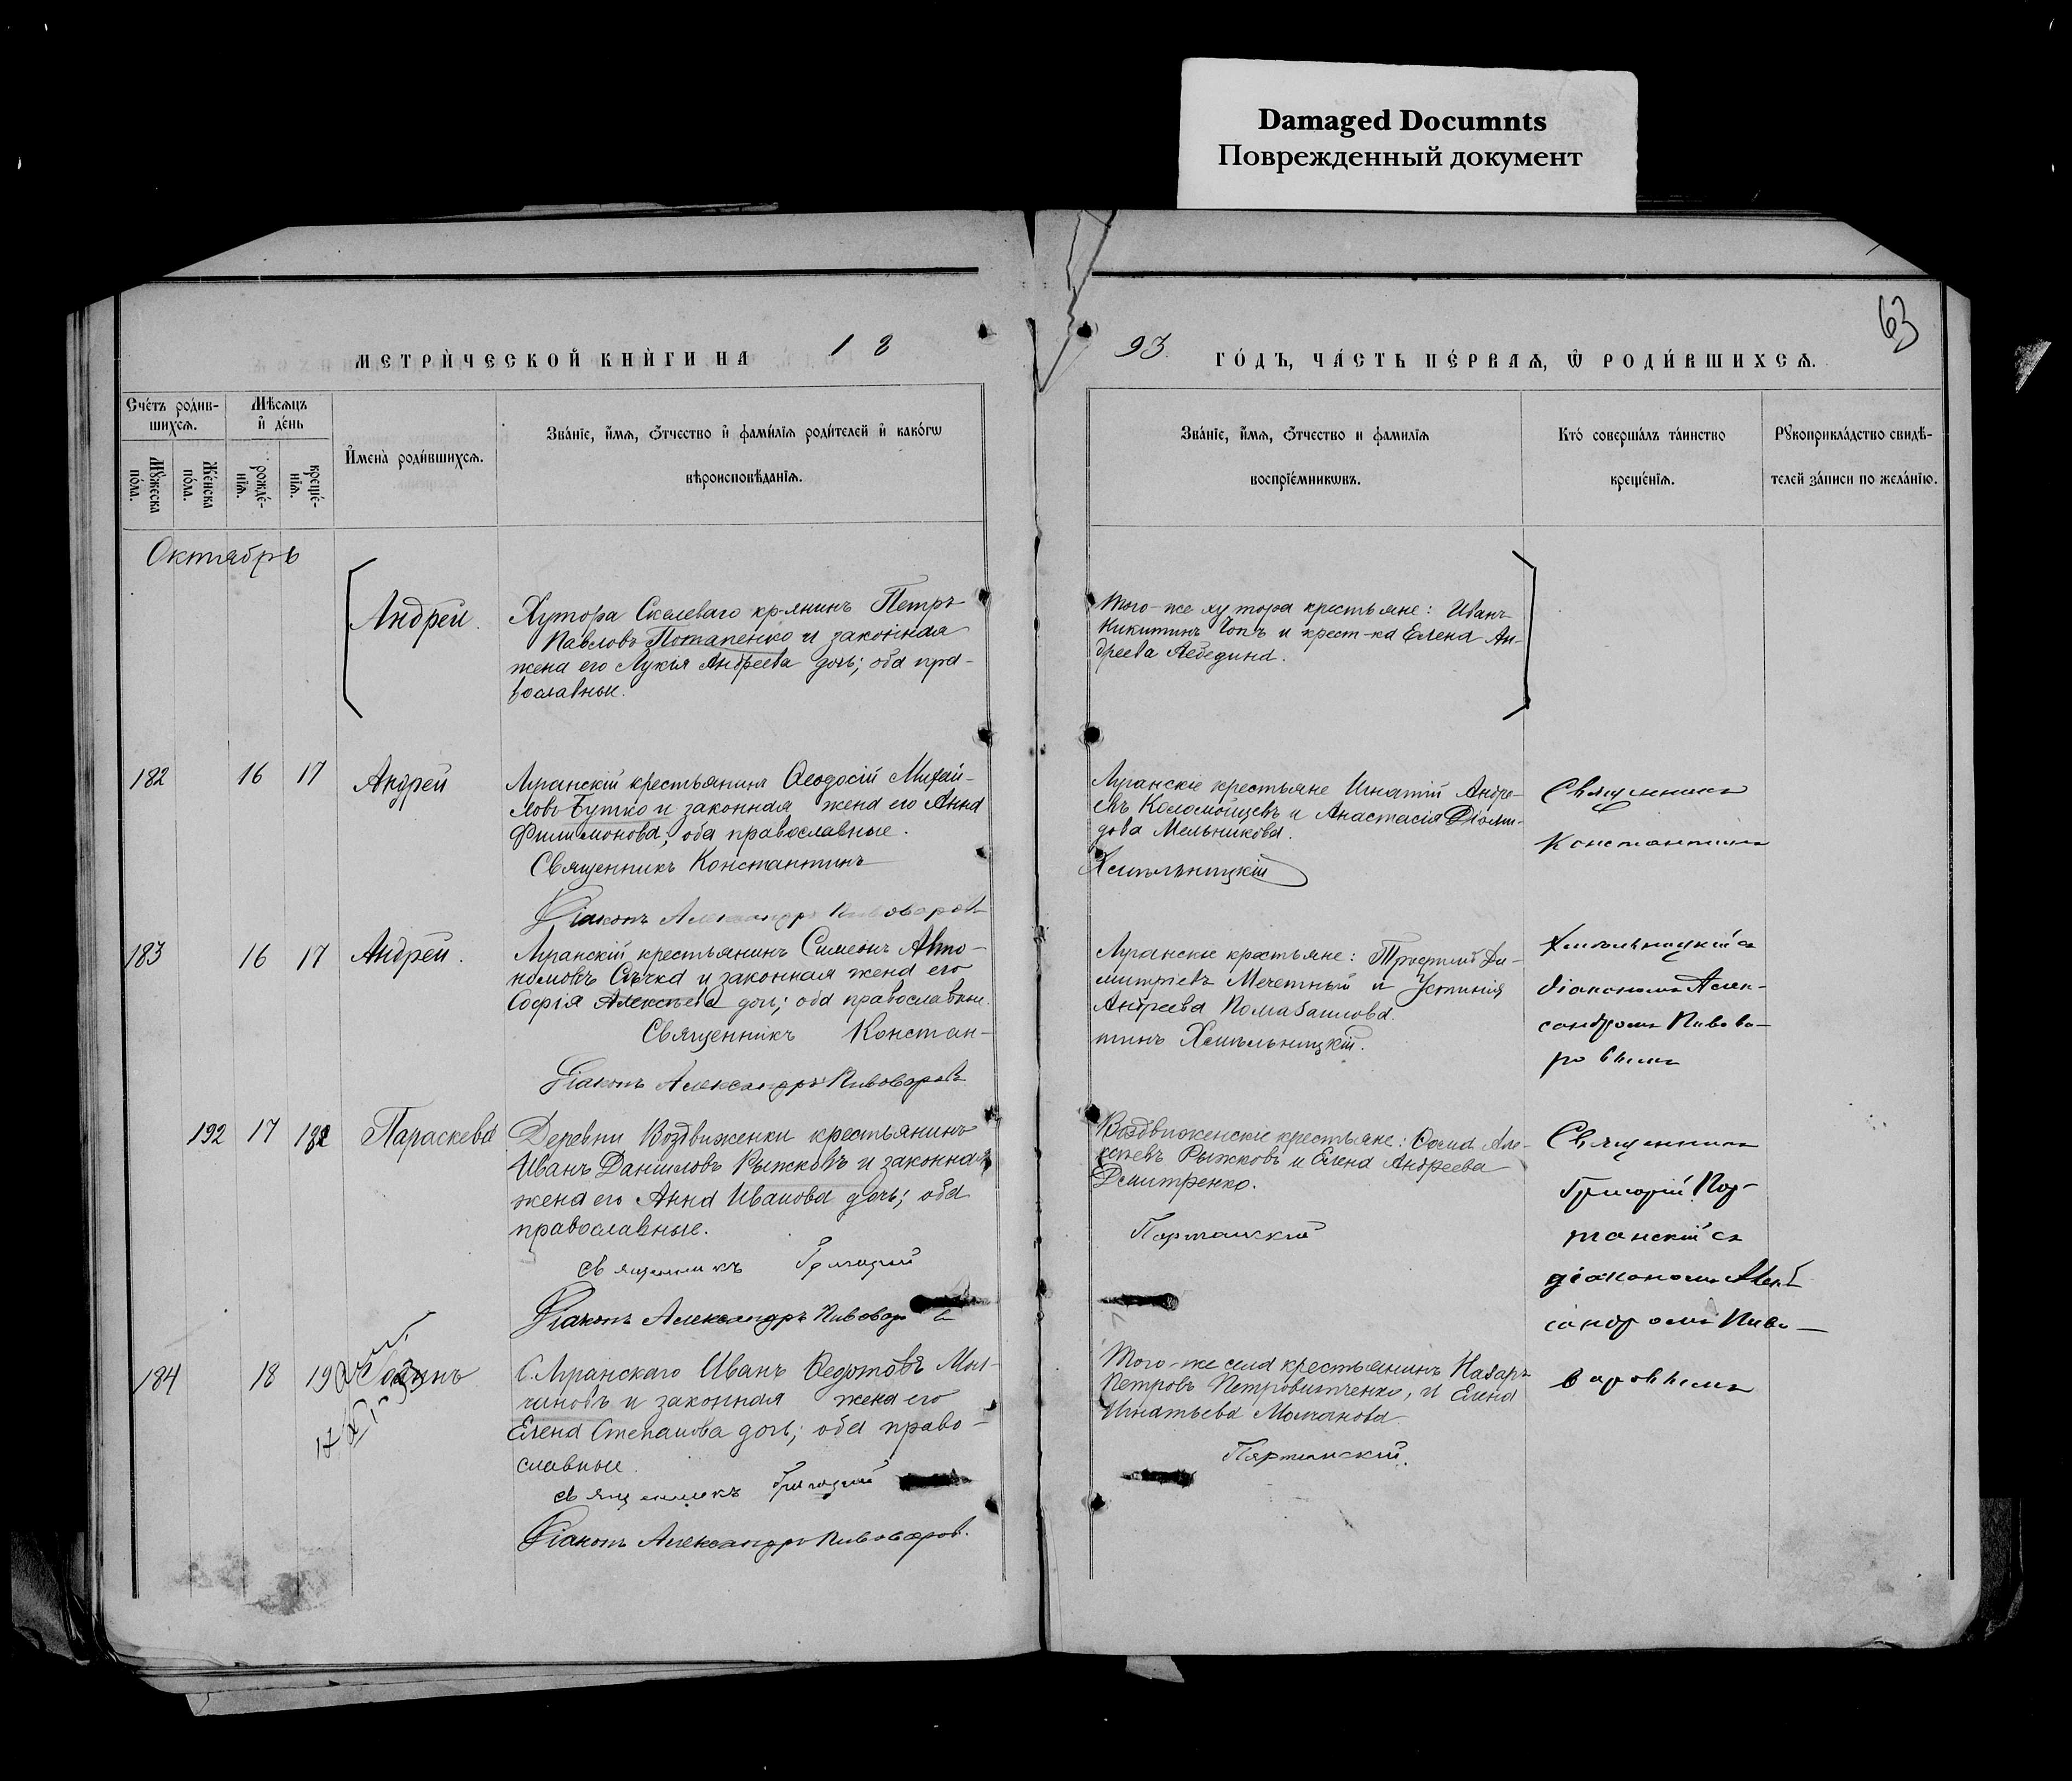 Damaged Documnts
Поврежденный документ
63
МЕТРИ́ЧЕСКОЙ КНИ́ГИ НА 18
93. ГО́ДЪ, ЧА́СТЬ ПЕ́РВАѦ, Ѡ҆ РОДИ́ВШИХСѦ.
Сче́тъ роди́в-
шихсѧ.
Мѣ́сѧцъ
и҆ де́нь
Мꙋ́жеска
по́ла.
Же́нска
по́ла.
рожде́-
нїѧ.
креще́-
нїѧ.
И҆мена̀ роди́вшихсѧ.
Зва́нїе, и҆́мѧ, ѻ҆́тчество и҆ фами́лїѧ роди́телей и҆ како́гѡ
вѣроисповѣ́данїѧ.
Зва́нїе, и҆́мѧ, ѻ҆́тчество и фами́лїѧ
воспрїе́мникѡвъ.
Кто́ соверша́лъ та́инство
креще́нїѧ.
Рꙋкоприкла́дство свидѣ́-
телей за́писи по жела́нїю.
Октябрь
Андрей.
Хутора Скелеваго кр-янинъ Петръ
Павловъ Потапенко и законная
жена его Лукія Андреева дочь; оба пра-
вославные.
Того-же хутора крестьяне: Иванъ
Никитинъ Чопъ и крест-ка Елена Ан-
дреева Лебедина.
182 16 17 Андрей
Луганскій крестьянинъ Ѳеодосій Михай-
ловъ Бутко и законная жена его Анна
Филимонова; оба православные.
Священникъ Константинъ
Діаконъ Александръ Пивоваровъ
Луганскіе крестьяне Игнатій Андре-
евъ Коломойцевъ и Анастасія Діоми-
дова Мельникова.
Хмѣльницкій
Священникъ
Константинъ
183 16 17 Андрей.
Луганскій крестьянинъ Симеонъ Авто-
номовъ Сѣчка и законная жена его
Софія Алексѣева дочь; оба православные.
Священникъ Констан-
Діаконъ Александръ Пивоваровъ
Луганскіе крестьяне: Трофимъ Ди-
митріевъ Мечетный и Устинія
Андреева
тинъ Хмѣльницкій.
Хмѣльницкій съ
діакономъ Алек-
сандромъ Пивова-
ровымъ
192 17 18 Параскева
Деревни Воздвиженки крестьянинъ
Иванъ Даниловъ Рыжковъ и законная
жена его Анна Иванова дочь; оба
православные.
священникъ Григорій
Діаконъ Александръ Пивовар
Воздвиженскіе крестьяне: Ѳома Але-
ксѣевъ Рыжковъ и Елена Андреева
Дмитренко.
Порташскій
Священникъ
Григорій
съ
діакономъ Алек
сандромъ Пиво-
184 18 19
С. Луганскаго Иванъ Ѳедотовъ Мол-
чановъ и законная жена его
Елена Степанова дочь; оба право-
славные
священникъ Григорій
Діаконъ Александръ Пивоваров.
Того-же села крестьянинъ Назаръ
Петровъ и Елена
Игнатьева Молчанова
варовымъ